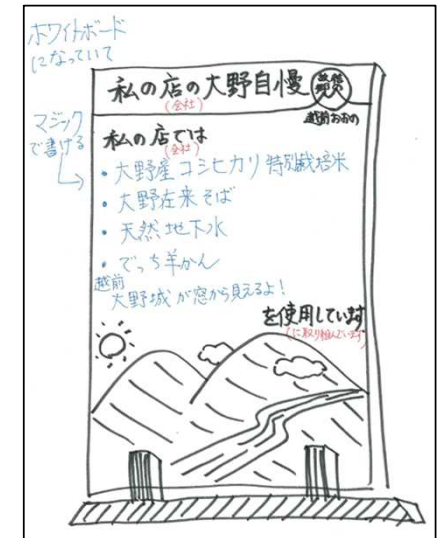 ホワイトボード
になっていて
私の店の大野自慢
(会社)
越前おおの
マジック
で書ける
私の店では
(会社)
・大野産コシヒカリ特別栽培米
・大野在来そば
・天然地下水
・でっち羊かん
越前
大野城が窓から見えるよ!
を使用しています
(に取り組んでいます)